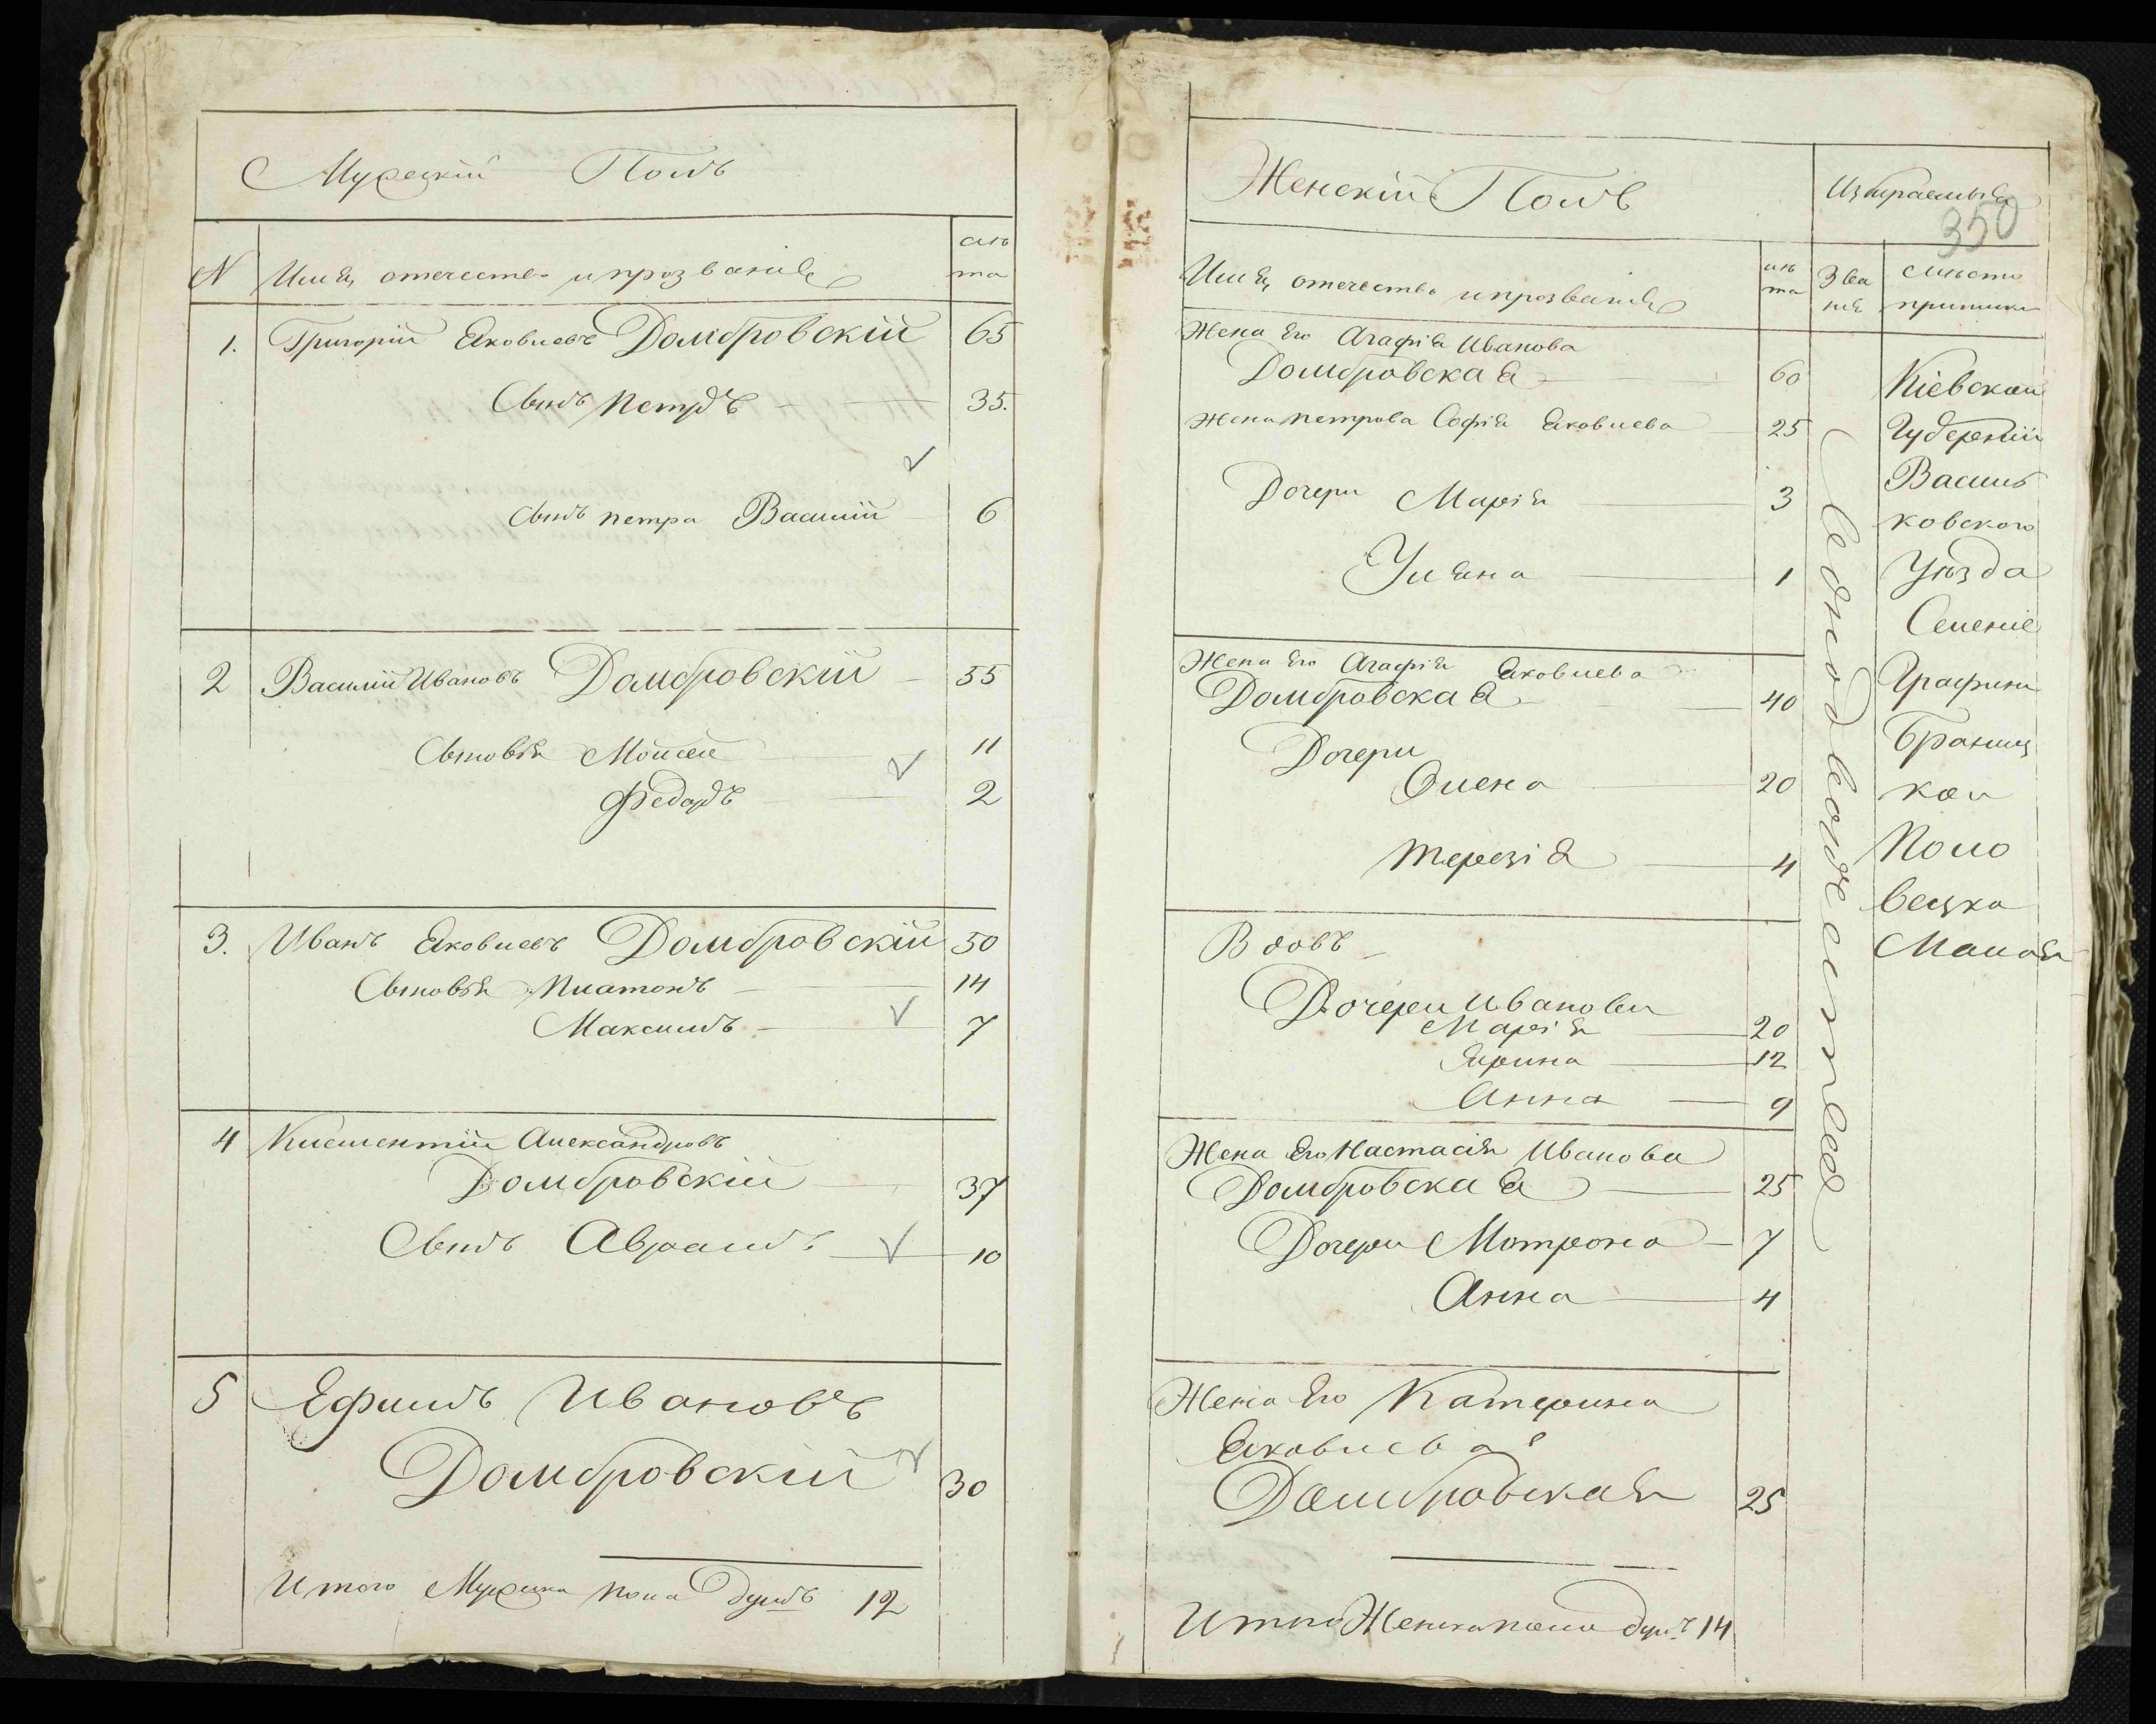 Мужескій Полъ
N Имя, отечество и прозваніе
лѣ
та
1. Григорій Яковлевъ Домбровскій 65
Сынъ Петръ 35.
Сынъ Петра Василій 6
2 Василій Ивановъ Домбровскій 55
Сыновья Мойсей 11
Федоръ 2
3. Иванъ Яковлевъ Домбровскій 50
Сыновья Платонъ 14
Максимъ 7
4 Клементій Александровъ
Домбровскій 37
Сынъ Аврамъ 10
5 Ефимъ Ивановъ
Домбровскій 30
Итого Мужска пола душъ 12
Женскій Полъ
350
Имя, отечество и прозваніе
лѣ
та
Зва
нія
Жена Его Агафія Иванова
Домбровская 60
Жена Петрова Софія Яковлева 25
Дочери Марія 3
Уляна 1
Жена Его Агафія Яковлева
Домбровская 40
Дочери
Олена 20
Терезія 4
Вдовъ
Дочери Ивановы
Марія 20
Ярина 12
Анна 9
Жена Его Настасія Иванова
Домбровская 25
Дочери Матрона 7
Анна 4
Жена Его Катерина
Яковлева
Домбровская 25
Итого Женска пола душъ 14
Кіевской
Губерніи
Василь
ковского
Уѣзда
Селеніе
Графини
Браниц
кой
Поло
вецка
Малая